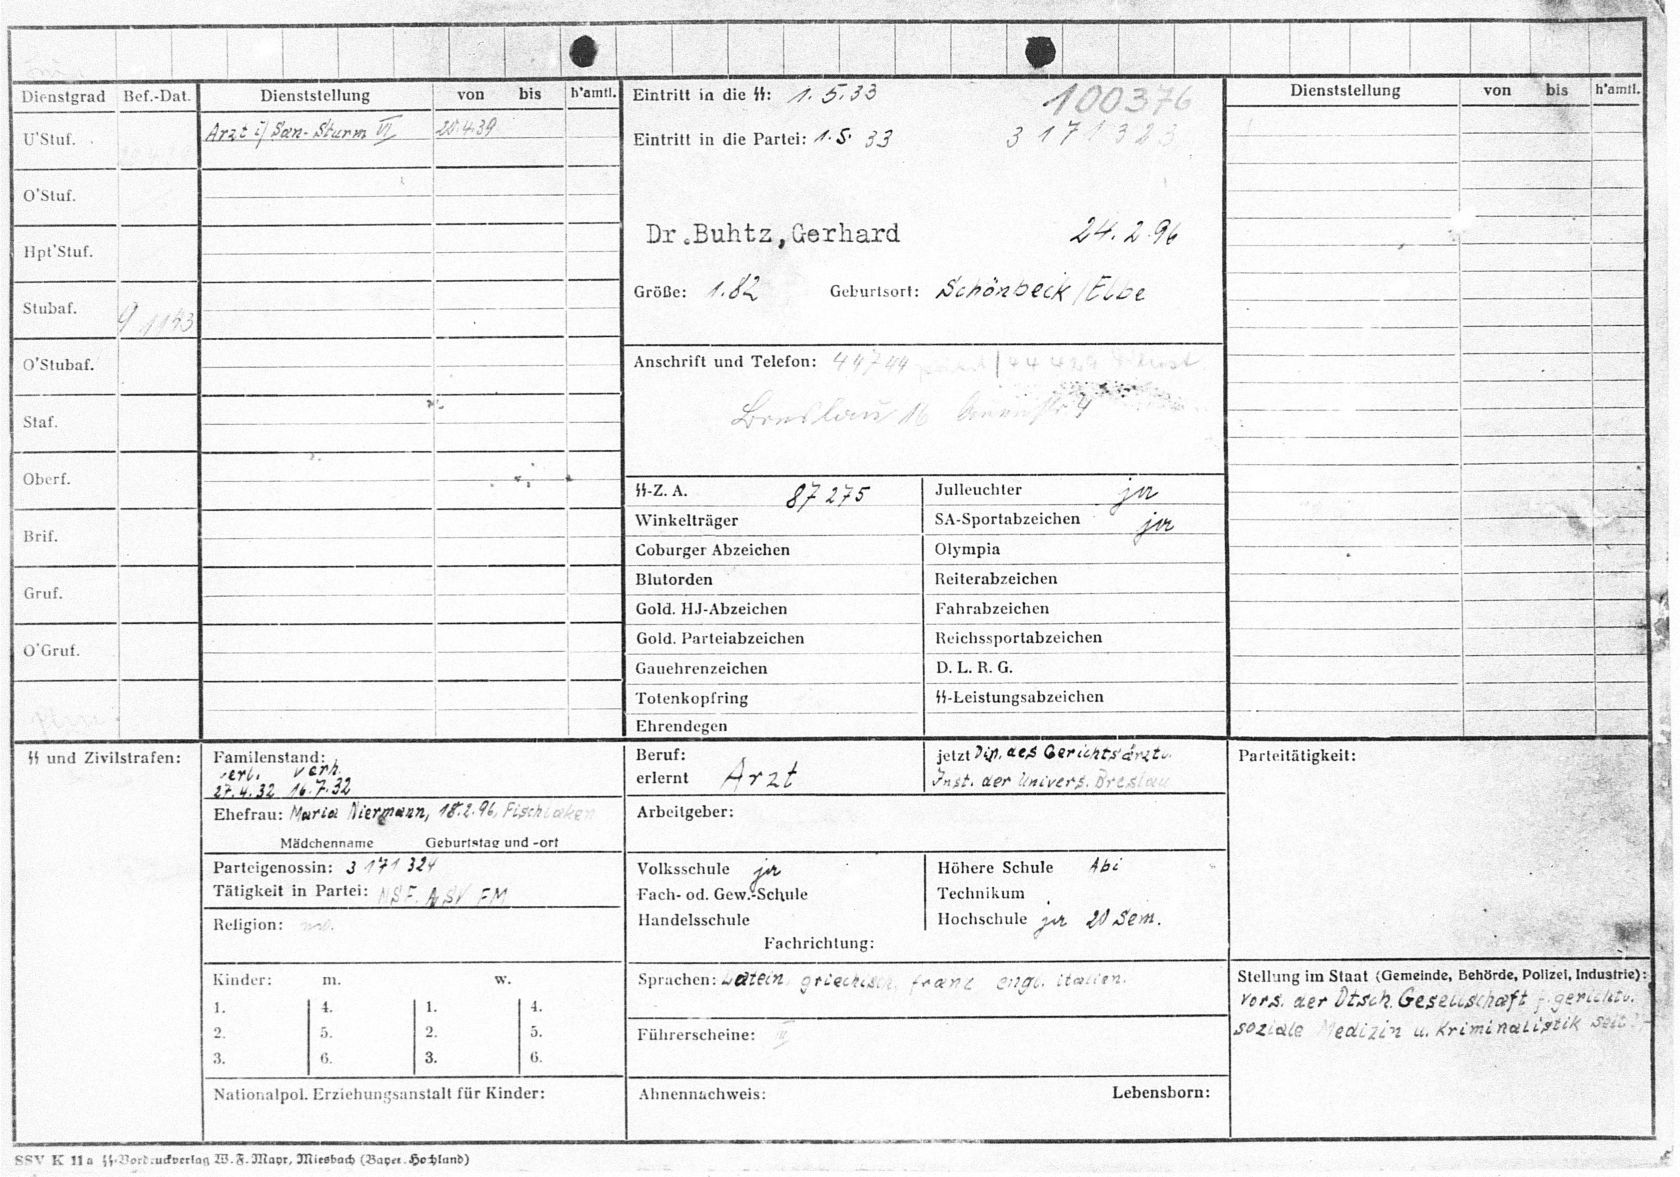 Dienstgrad Bef.-Dat. Dienststellung von bis h'amtl.
U'Stuf.
Arzt i/ San- Sturm VI 20.4.39
O'Stuf.
Hpt'Stuf.
Stubaf. 9 11 43
O'Stubaf.
Staf.
Oberf.
Brif.
Gruf.
O'Gruf.
Eintritt in die ᛋᛋ: 1.5.33 100376
Eintritt in die Partei: 1.5.33 3 171 323
Dr.Buhtz,Gerhard 24.2.96
Größe: 1.82 Geburtsort: Schönbeck/Elbe
Anschrift und Telefon: 44744
Breslau 16
ᛋᛋ-Z. A. 87 275
Winkelträger
Coburger Abzeichen
Blutorden
Gold. HJ-Abzeichen
Gold. Parteiabzeichen
Gauehrenzeichen
Totenkopfring
Ehrendegen
Julleuchter ja
SA-Sportabzeichen ja
Olympia
Reiterabzeichen
Fahrabzeichen
Reichssportabzeichen
D. L. R. G.
ᛋᛋ-Leistungsabzeichen
Dienststellung von bis h'amtl.
ᛋᛋ und Zivilstrafen:
Familenstand:
verl. verh.
27.4.32 16.7.32
Ehefrau: Maria Niermann, 18.2.96, Fischlaken
Mädchenname Geburtstag und -ort
Parteigenossin: 3 171 324
Tätigkeit in Partei: NSF. NSV FM
Religion:
Kinder: m. w.
1. 4. 1. 4.
2. 5. 2. 5.
3. 6. 3. 6.
Nationalpol. Erziehungsanstalt für Kinder:
Beruf:
erlernt Arzt
jetzt Dir. des Gerichtsärztl.
Inst. der Univers. Breslau
Arbeitgeber:
Volksschule ja
Fach- od. Gew.-Schule
Handelsschule
Höhere Schule Abi
Technikum
Hochschule ja 20 Sem.
Fachrichtung:
Sprachen: Latein, griechisch, franz engl. italien.
Führerscheine: III
Ahnennachweis: Lebensborn:
Parteitätigkeit:
Stellung im Staat (Gemeinde, Behörde, Polizei, Industrie):
Vors. der Dtsch. Gesellschaft f. gerichtl.
soziale Medizin u. Kriminalistik seit
SSV K 11a ᛋᛋ-Vordruckverlag W. F. Mayr, Miesbach (Bayer. Hochland)